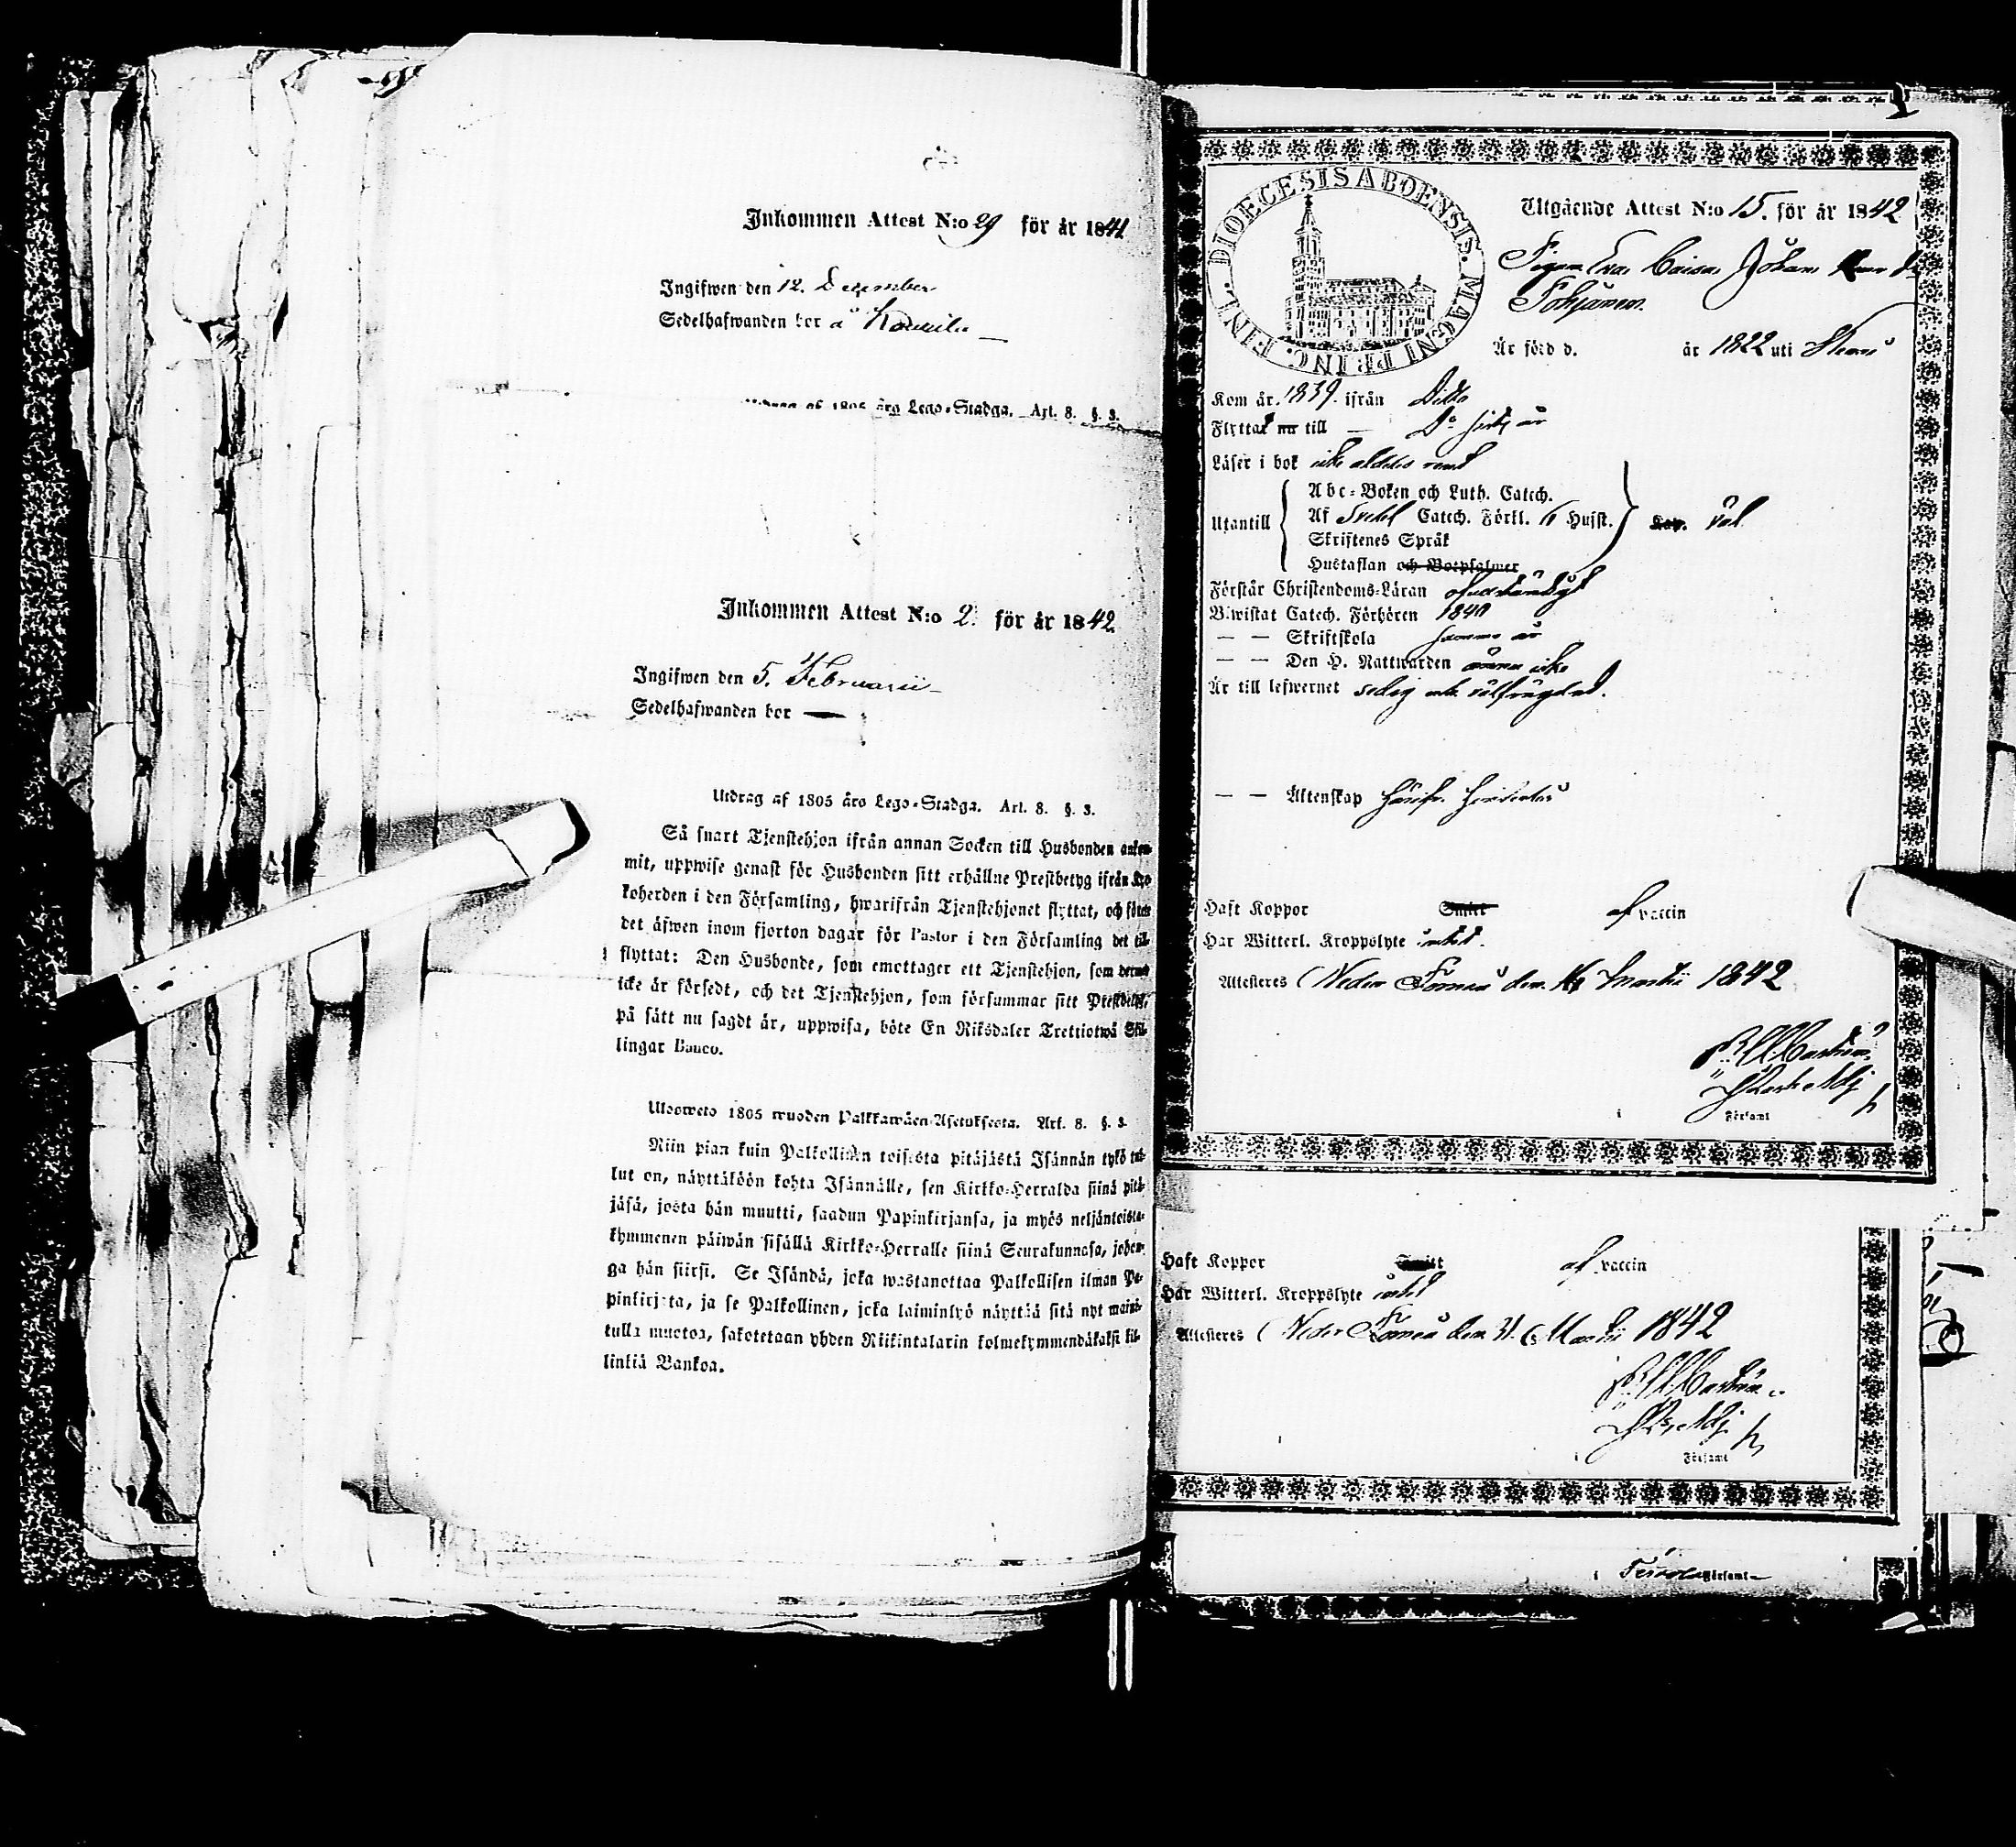 Inkommen Attest N:o 29 för år 1841
Ingifwen den 12. December
Sedelhafwanden bor å
Utdrag af 1805 års Lego-Stadga. Art. 8. §. 3.
Inkommen Attest N:o 2. för år 1842.
Ingifwen den 5. Februarii
Sedelhafwanden bor —
Utdrag af 1805 års Lego-Stadga. Art. 8. §. 3.
Så snart Tjenstehjon ifrån annan Socken till Husbonden ankom-
mit, uppwise genast för Husbonden sitt erhållne Prestbetyg ifrån Kyr-
koherden i den Församling, hwarifrån Tjenstehjonet flyttat, och
det äfwen inom fjorton dagar för Pastor i den Församling det till-
flyttat: Den Husbonde, som emottager ett Tjenstehjon, som dermed
icke är försedt, och det Tjenstehjon, som försummar sitt Prestbetyg,
på sätt nu sagdt är, uppwisa, böte En Riksdaler Trettiotwå Skil-
lingar Banco.
Ulosweto 1805 wuoden Palkkawäen-Asetuksesta. Art. 8. §. 3.
Niin pian kuin Palkollinen toisesta pitäjästä Isännän tykö tul-
lut on, näyttäköön kohta Isännälle, sen Kirkko-Herralda siinä pitä-
jäsä, josta hän muutti, saadun Papinkirjansa, ja myös neljäntoista-
kymmenen päiwän sisällä Kirkko-Herralle siinä Seurakunnasa, johon-
ga hän siirsi. Se Isändä, joka wastanottaa Palkollisen ilman Pa-
pinkirjata, ja se Palkollinen, joka laiminlyö näyttää sitä nyt maini-
tulla muotoa, sakotetaan yhden Riikintalarin kolmekymmendäkaksi kil-
linkiä Bankoa.
DIOECESIS ABOENSIS. MAGNI PRINC. FINL.
Utgående Attest N:o 15. för år 1842
Pigan Eva Caisa Johans
Pohjanen.
Är född d. år 1822 uti
Kom år 1839 ifrån Dito
Flyttat till — Do
Läser i bok icke aldeles rent
Utantill
Abc-Boken och Luth. Catech.
Af Catech. Förkl. Husst.
Skriftenes Språk
Hustaflan och Botpsalmer
väl
Förstår Christendoms-Läran
Bewistat Catech. Förhören 1840
— — Skriftskola samma år
— — Den H. Nattwarden ännu icke
Är till lefwernet sedig och välfrägdad.
— — Äktenskap
Haft Koppor Smitt af vaccin
Har Witterl. Kroppslyte intet.
Attesteras Neder Torneå den Martii 1842
Församl
Haft Koppor Smitt af vaccin
Har Witterl. Kroppslyte intet
Attesteras Neder Torneå den 31. Martii 1842
Församl
Församl